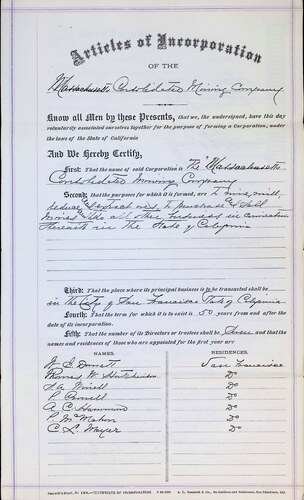 Articles of Incorporation
OF THE
Massachusetts Consolidated Mining Company
Know all Men by these Presents, that we, the undersigned, have this day
voluntarily associated ourselves together for the purpose of forming a Corporation, under
the laws of the State of California
And We Hereby Certify,
First: That the name of said Corporation is The "Massachusetts
Consolidated Mining Company"
Second: That the purposes for which it is formed, are to mine, mill,
reduce & extract ores, to purchase & sell
Mines & do all other business in connection
therewith in The State of California
Third: That the place where its principal business is to be transacted shall be
in the City of San Francisco State of California
Fourth: That the term for which it is to exist is 50 years from and after the
date of its incorporation.
Fifth: That the number of its Directors or trustees shall be Seven and that the
names and residences of those who are appointed for the first year are
NAMES. RESIDENCES.
San Francisco
Thomas W. Hutchinson Do
Do
Do
A. C. Hammond Do
P. McMahon Do
C. L. Do